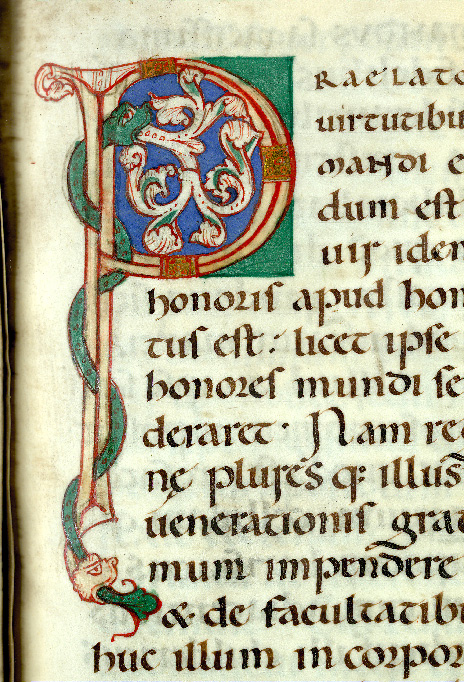 PRAELATO
uirtutibu
MANDI e
dum eſt
uir iden
honoriſ apud hon
tuſ eſt: licet ipſe
honoreſ mundi ſe
deraret. Nam re
nę plureſ q: illuſ
uenerationiſ grat
mum impendere
& de facultatib
huc illum in corpor